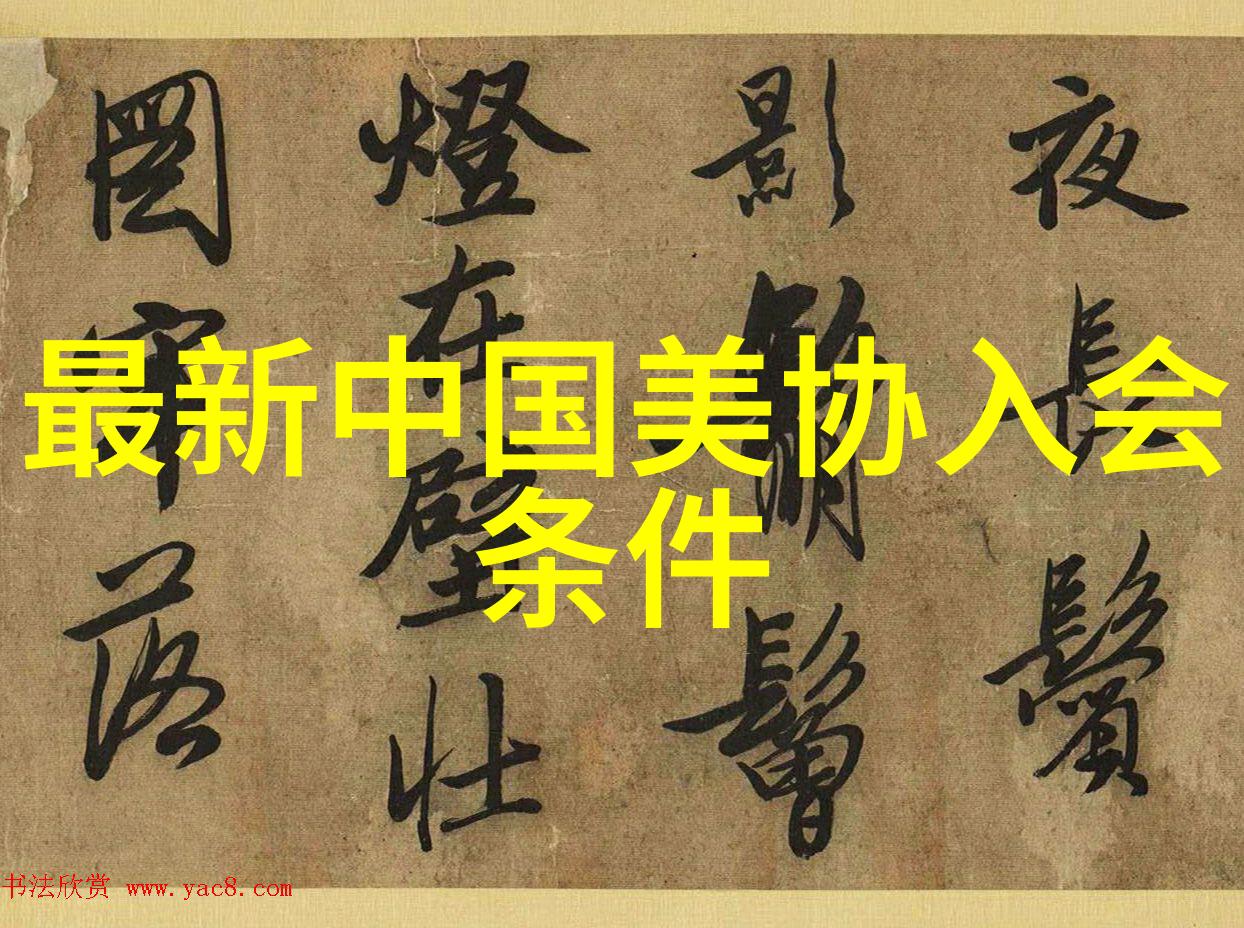 最新中国美协入会
条件
夜長鬢
影鬅鬙
燈在壁壯
圖牢落
书法欣赏 www.yac8.com